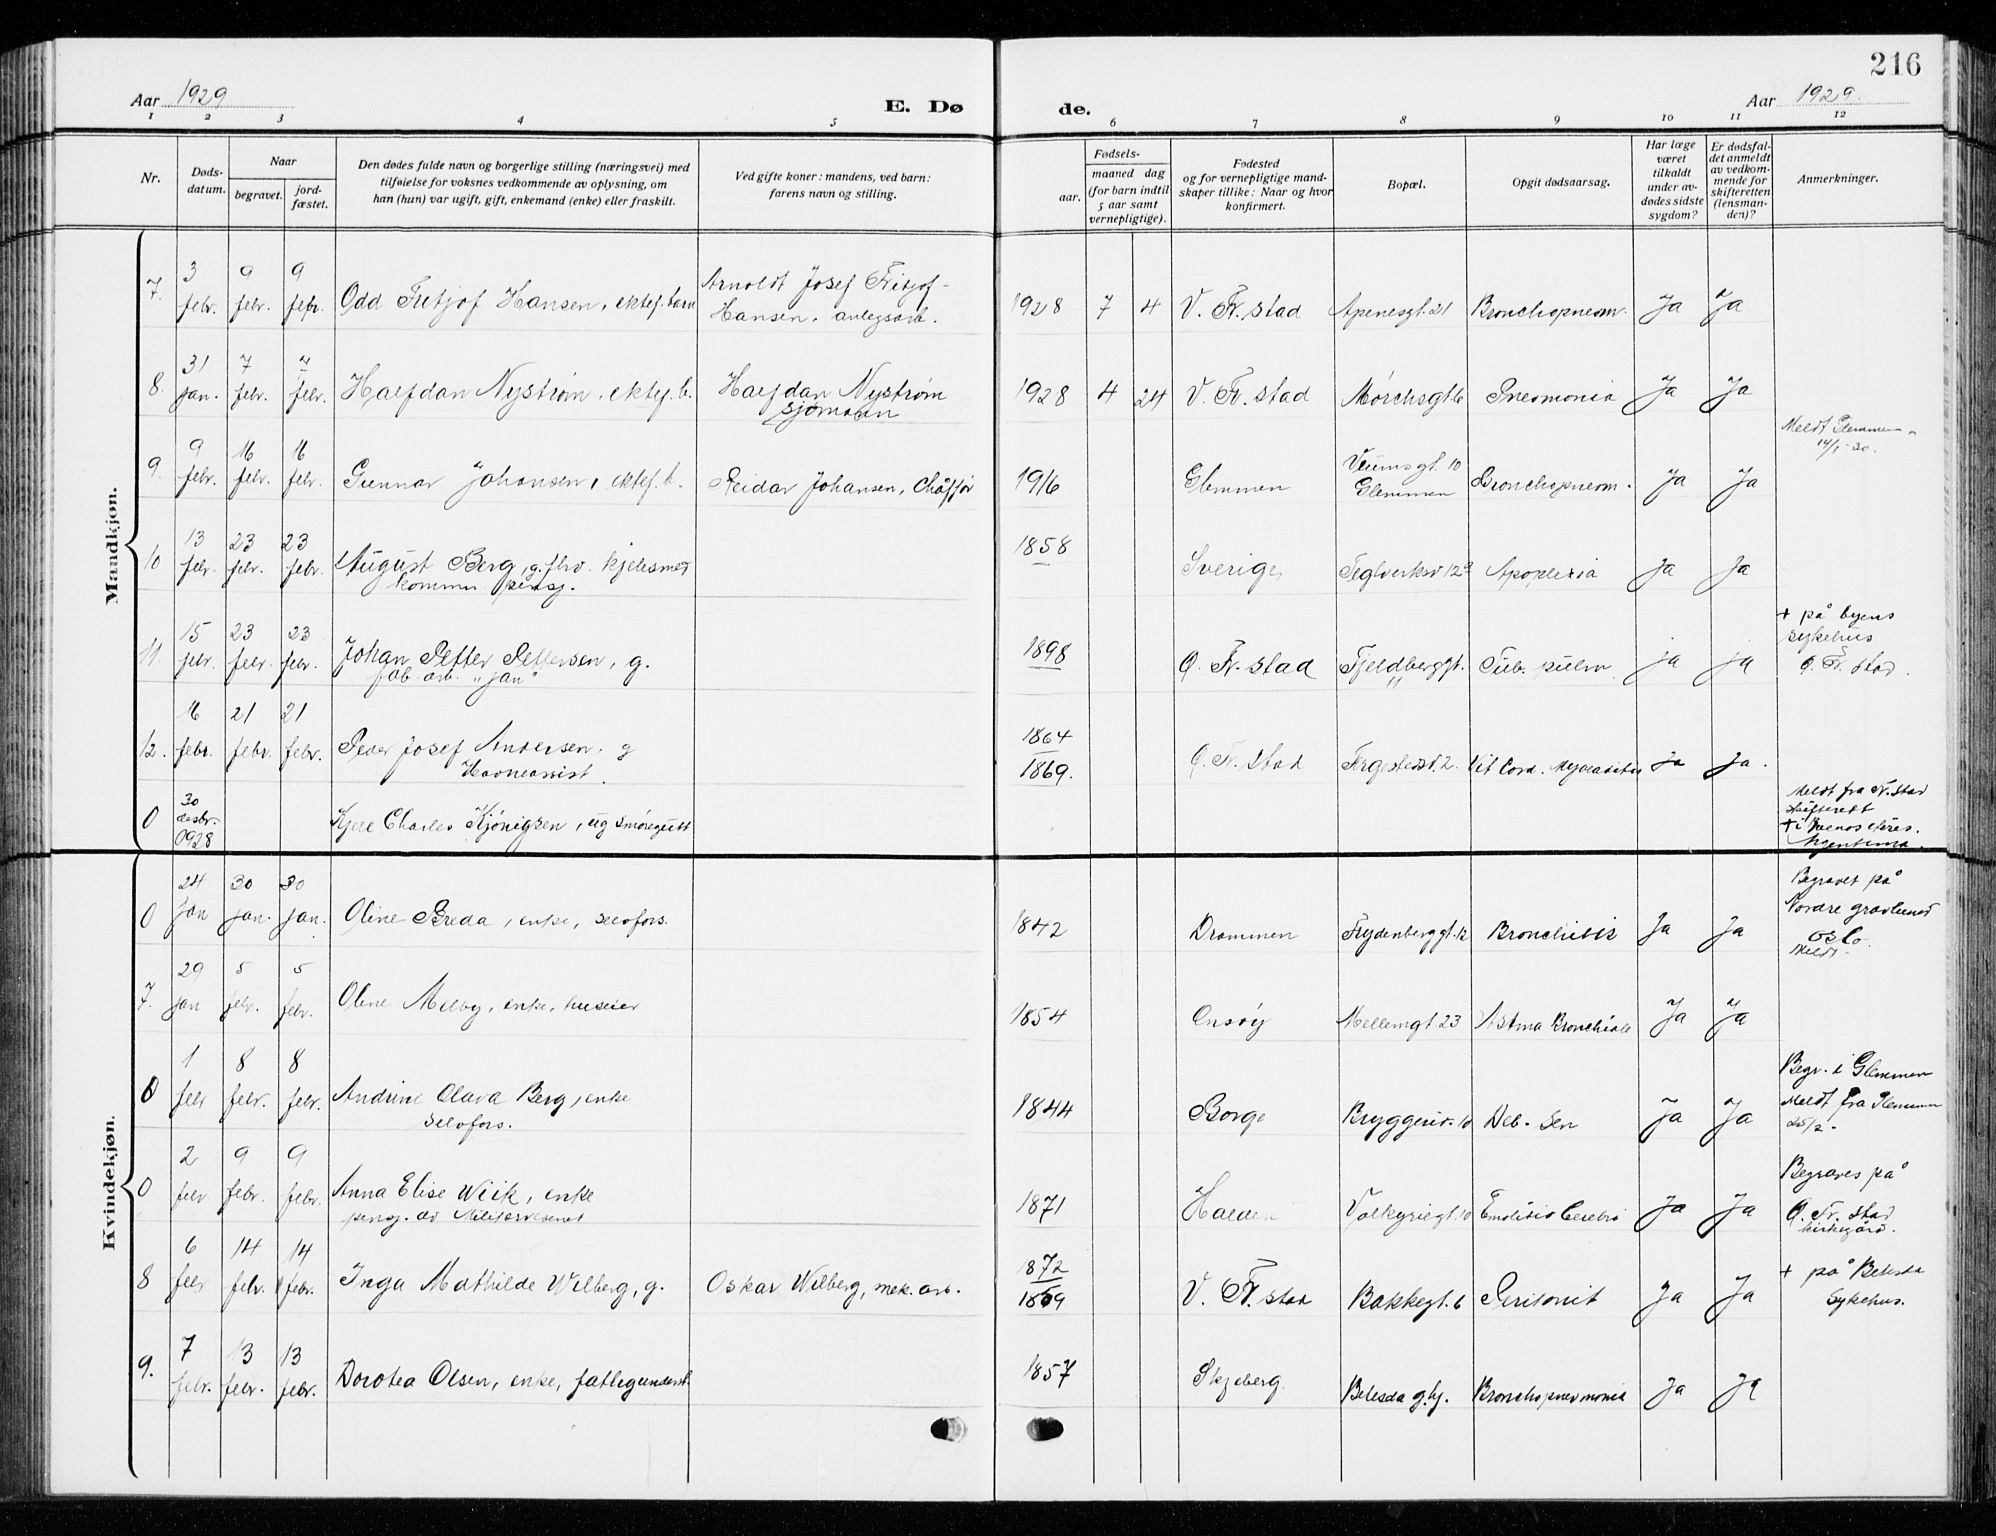 216
Aar 1929
E. Dø
de.
Aar 1929.
1 2 3 4 5 6 7 8 9 10 11 12
Nr.
Døds-
datum.
Naar
begravet.
jord-
fæstet.
Den dødes fulde navn og borgerlige stilling (næringsvei) med
tilføielse for voksnes vedkommende av oplysning, om
han (hun) var ugift, gift, enkemand (enke) eller fraskilt.
Ved gifte koner: mandens, ved barn:
farens navn og stilling.
Fødsels-
aar.
maaned dag
(for barn indtil
5 aar samt
vernepligtige).
Fødested
og for vernepligtige mand-
skaper tillike: Naar og hvor
konfirmert.
Bopæl.
Opgit dødsaarsag.
Har læge
været
tilkaldt
under av-
dødes sidste
sygdom?
Er dødsfal-
det anmeldt
av vedkom-
mende for
skifteretten
(lensman-
den)?
Anmerkninger.
Mandkjøn.
7. 3 febr. 9 febr. 9 febr. Odd Fritjof Hansen, ektef. barn
Arnoldt Josef Fritjof-
Hansen, anlegsarb.
1928 7 4 V. Fr. stad Apenesgt. 21 Bronchopneom. Ja Ja
8. 31 jan. 7 febr. 7 febr. Halfdan Nystrøm, ektef. b.
Halfdan Nystrøm
sjømann
1928 4 24 V. Fr. stad Mørchsgt 6 Pneomonia Ja Ja
9. 9 febr. 16 febr. 16 febr. Gunnar Johansen, ektef. b.
Reidar Johansen, Chåffør
1916 Glemmen
Veumsgt. 10
Glemmen
Bronchopneom. Ja Ja
Meldt Glemmen
14/1-30.
10 13 febr. 23 febr. 23 febr. August Berg, g. fhv. kjelesmed
kommun pensj.
1858 Sverige, Teglverksv 12a Apoplexia Ja Ja
11. 15 febr. 23 febr. 23 febr. Johan Petter Pettersen, g.
fab. arb. "Jan"
1898 Ø. Fr. stad Fjeldberggt. 11 Tub. pulm. ja ja
+ på byens
sykehus
Ø. Fr. stad.
12. 16 febr. 21 febr. 21 febr. Peder Josef Andersen, g
Havneassist.
1864
1869.
Ø. Fr. stad Fergestedsv. 2. Vit Cord. Myocaditis Ja Ja.
0 30 desbr. 1928 Kjell Charles Kjönigsen, ug smøregutt
Meldt fra Fr. stad
skifterett
+ i Buenos Aires.
Argentina.
Kvindekjøn.
0 24 jan 30 jan. 30 jan. Oline Breda, enke, selvfors.
1842 Drammen Frydenberggt. 12 Bronchitis Ja Ja
Begravet på
Nordre gravlund
Oslo.
Meldt.
7. 29 jan 5 febr. 5 febr. Oline Melby, enke, huseier
1854 Onsøy Mellemgt. 23 Astma Bronchiale Ja Ja
0 1 febr 8 febr. 8 febr. Andrine Olava Berg, enke
selvfors.
1844 Borge Bryggeriv. 10 Deb. Sen Ja Ja
Begr. i Glemmen
Meldt fra Glemmen
25/2-
0 2 febr 9 febr. 9 febr. Anna Elise Wiik, enke
pensj. av Militærvesenet
1871 Halden Valkyriegt. 10 Emolitio Cerebri Ja Ja
Begraves på
Ø. Fr. stad
kirkegård.
8 6 febr 14 febr. 14 febr. Inga Mathilde Wilberg, g.
Oskar Wilberg, mek. arb.
1872
1869
V. Fr. stad Bakkegt. 6 Peritonit Ja Ja
+ på Betesda
Sykehus.
9. 7 febr. 13 febr. 13 febr. Dorotea Olsen, enke, fattigunderst.
1857 Skjeberg Betesda g. hj. Bronchopnevmonia Ja Ja